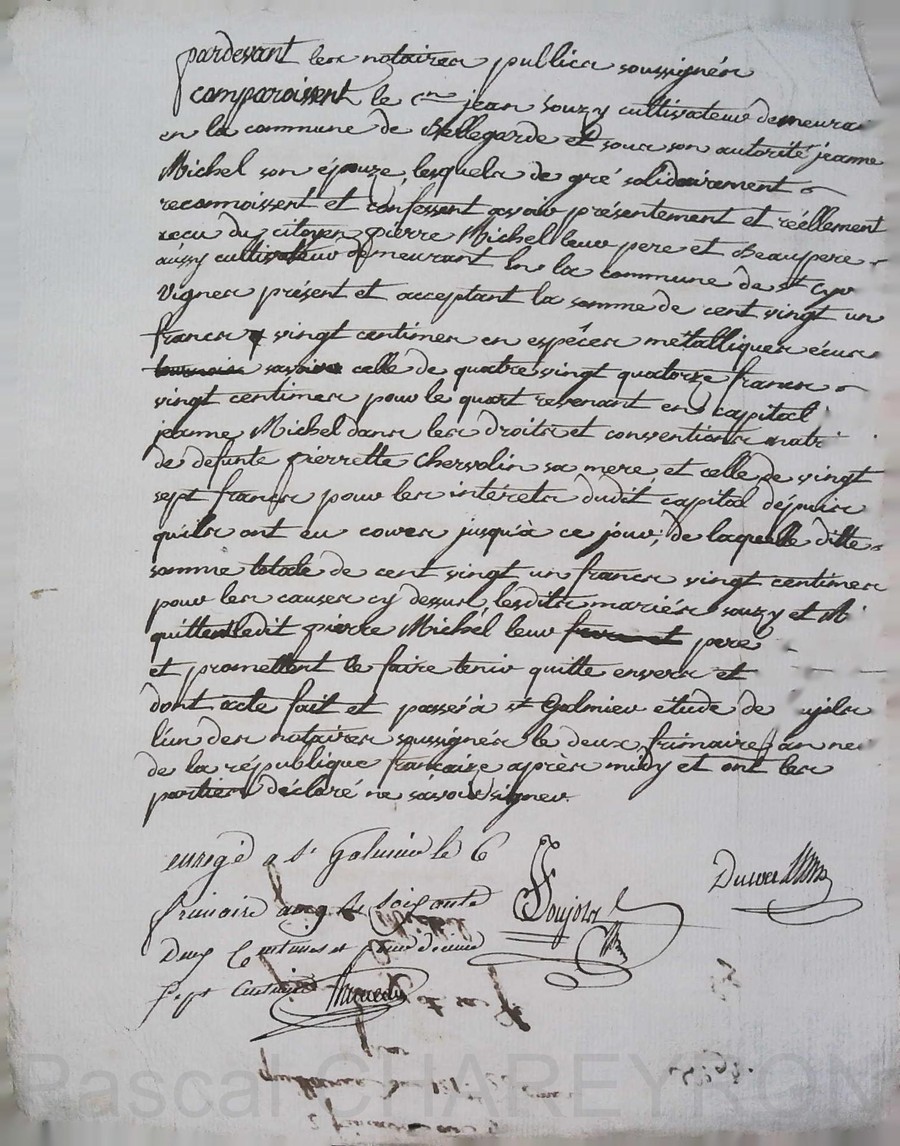 pardevant les notaires publics soussignés
comparoissent le cen jean Souzy cultivateur demeura
en la commune de Bellegarde et sous son autorité jeanne
Michel son épouze, lesquels de gré solidairement
reconnoissent et confessent avoir présentement et réellement
recu du citoyen pierre Michel leur pere et Beaupere
aussy cultivateur demeurant en la commune de st Cyr
Vignes présent et acceptant la somme de cent vingt un
francs vingt centimes en espéces métalliques écus
savoir celle de quatre vingt quatorze francs
vingt centimes pour le quart revenant en capital
jeanne Michel dans les droits et conventions matri
de defunte pierrette Chervolin sa mere et celle de vingt
sept francs pour les intérets dudit capital dépuis
quils ont eu cours jusqu'à ce jour, de laquelle ditte
somme totale de cent vingt un francs vingt centimes
pour les causes cy dessus, lesdits mariés souzy et Mi
quittent ledit pierre Michel leur pere
et promettent le faire tenir quitte envers et
dont acte fait et passé à st Galmier etude de ujols
l'un des notaires soussignés le deux frimaire an neu
de la république francaise après midy et ont les
parties déclaré ne savoir signer.
enregé a st Galmier le 6
frimaire an 9 soixante
Deux Centimes et pour decime
sept Centimes
Poujols